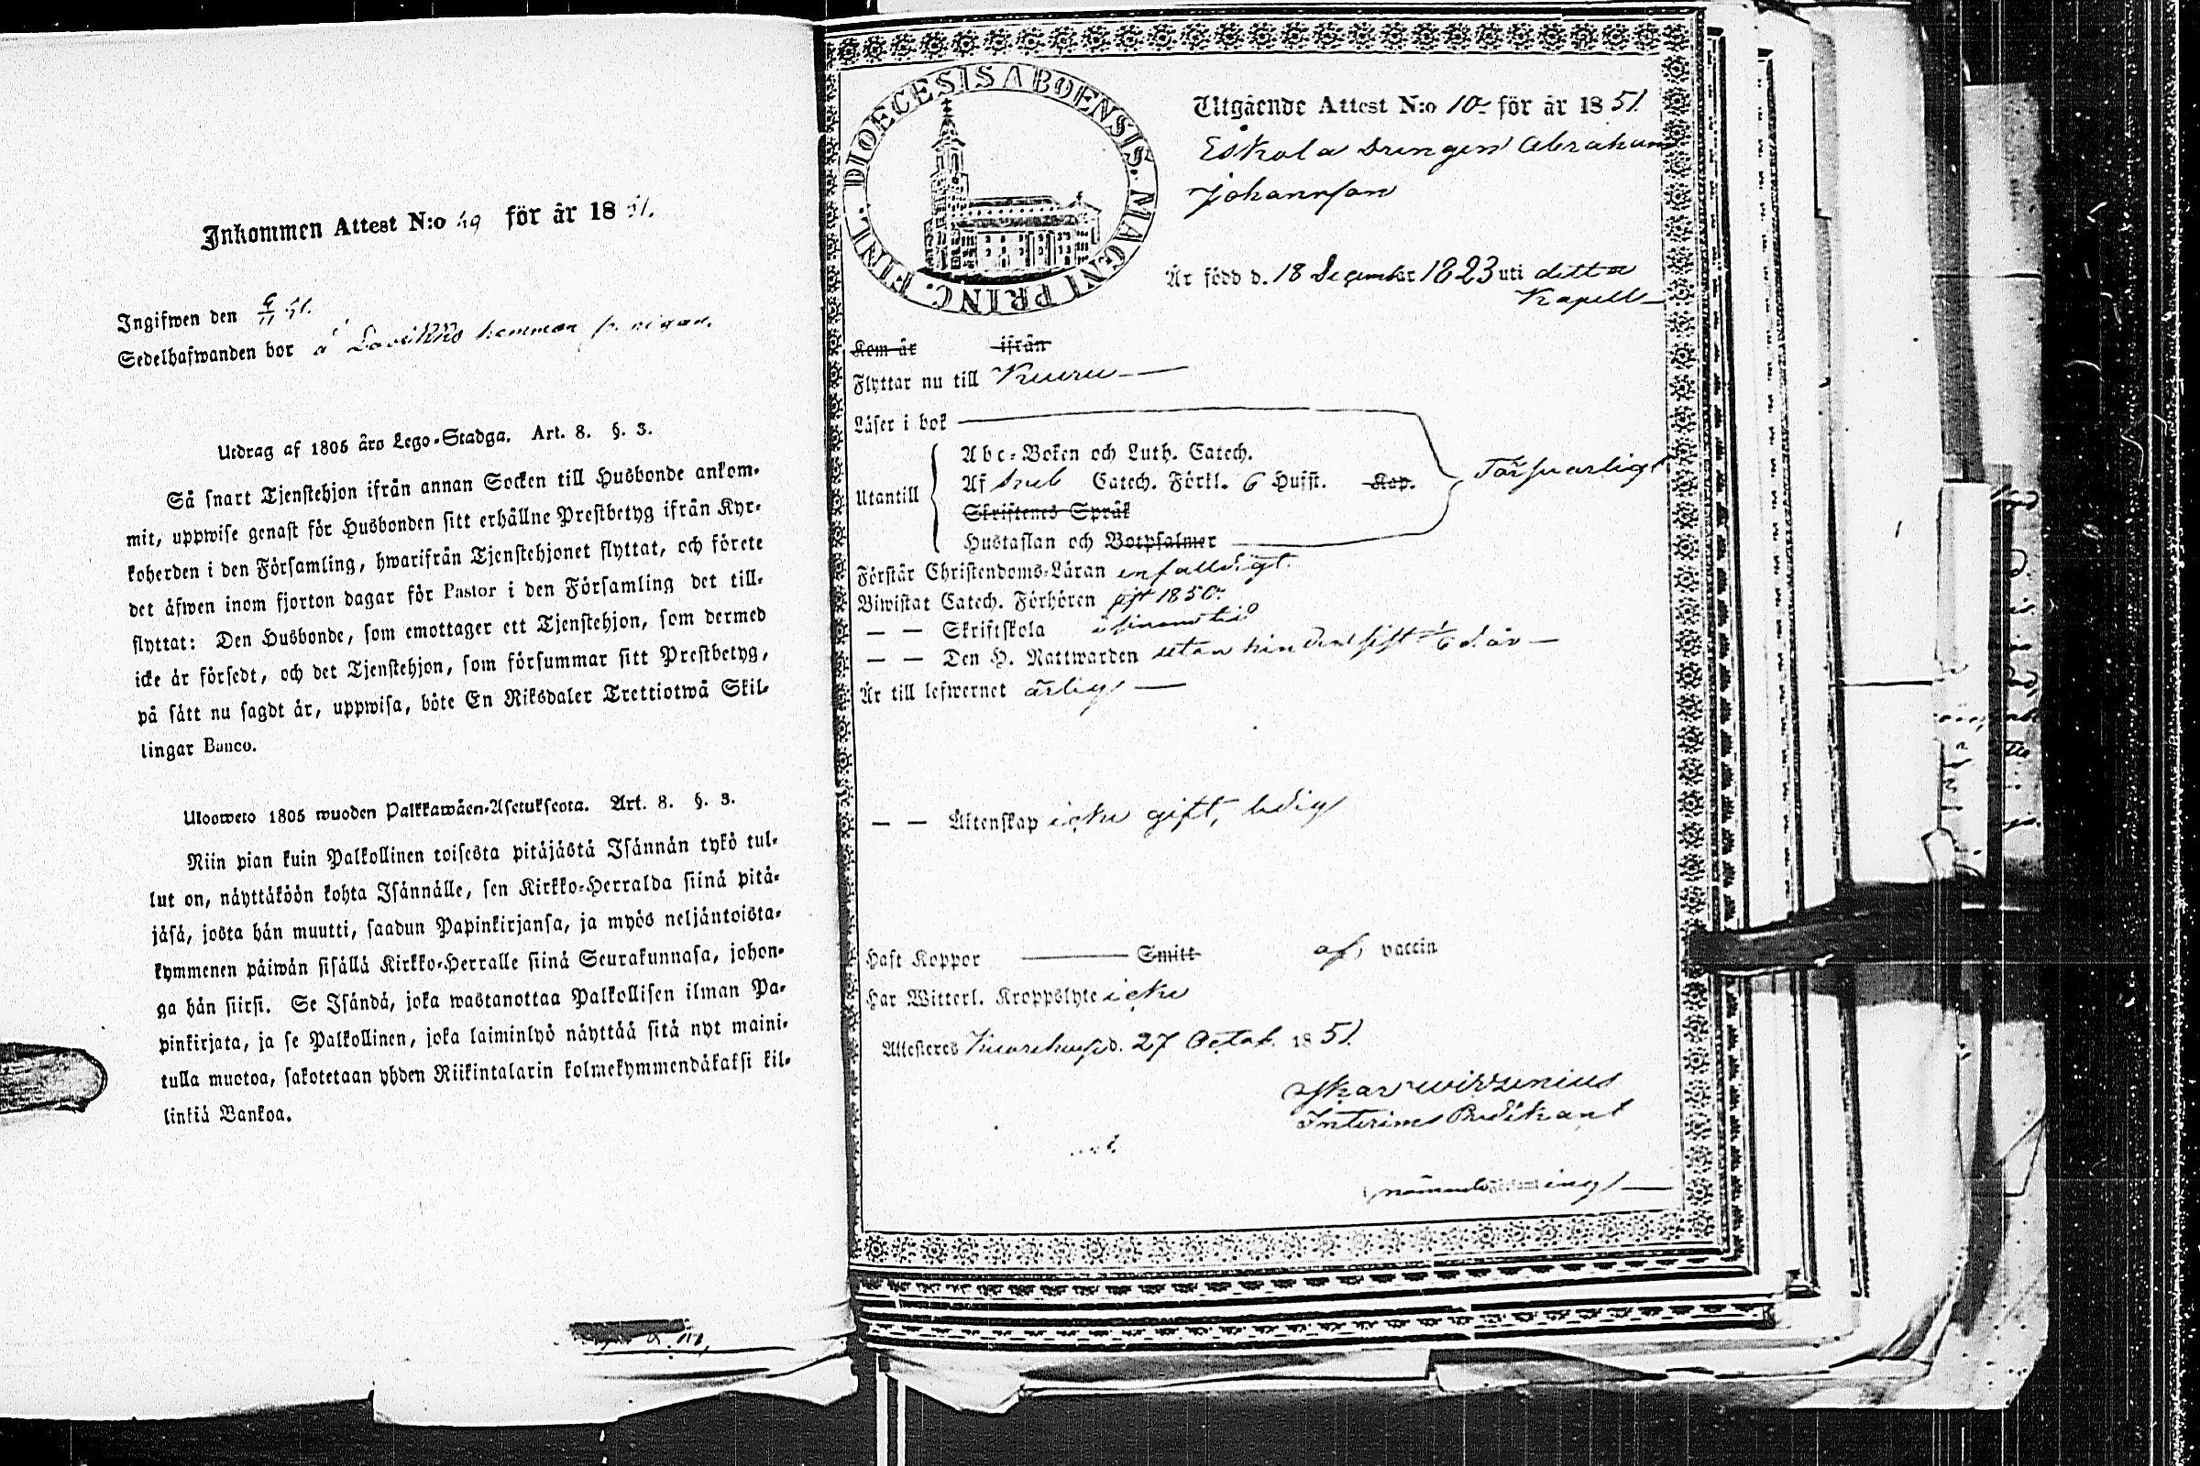 Inkommen Attest N:o för år 18 51.
Ingifwen den 9/11 51.
Sedelhafwanden bor å hemman
Utdrag af 1805 års Lego-Stadga. Art. 8. §. 3.
Så snart Tjenstehjon ifrån annan Socken till Husbonde ankom-
mit, uppwise genast för Husbonden sitt erhållne Prestbetyg ifrån Kyr-
koherden i den Församling, hwarifrån Tjenstehjonet flyttat, och förete
det äfwen inom fjorton dagar för Pastor i den Församling det till-
flyttat: Den Husbonde, som emottager ett Tjenstehjon, som dermed
icke är försedt, och det Tjenstehjon, som försummar sitt Prestbetyg,
på sätt nu sagdt är, uppwisa, böte En Riksdaler Trettiotwå Skil-
lingar Banco.
Ulosweto 1805 wuoden Palkkawäen-Asetuksesta. Art. 8. §. 3.
Niin pian kuin Palkollinen toisesta pitäjästä Isännän tykö tul-
lut on, näyttäköön kohta Isännälle, sen Kirkko-Herralda siinä pitä-
jäsä, josta hän muutti, saadun Papinkirjansa, ja myös neljäntoista-
kymmenen päiwän sisällä Kirkko-Herralle siinä Seurakunnasa, johon-
ga hän siirsi. Se Isändä, joka wastanottaa Palkollisen ilman Pa-
pinkirjata, ja se Palkollinen, joka laiminlyö näyttää sitä nyt maini-
tulla muotoa, sakotetaan yhden Riikintalarin kolmekymmendäkaksi kil-
linkiä Bankoa.
DIOECESIS ABOENSIS. MAGNI PRINC. FINL.
Utgående Attest N:o 10 för år 18 51.
Eskola Drengen Abraham
Johansson
Är född d. 18 December 1823 uti ditt
Kapell
Kom år ifrån
Flyttar nu till Kuru
Läser i bok
Utantill
Abc-Boken och Luth. Catech.
Af Sveb Catech. Förkl. 6 Hufst. Kap.
Skriftenes Språk
Hustaflan och Botpsalmer
Försvarligt
Förstår Christendoms-Läran enfalldigt
Biwistat Catech. Förhören sist 1850.
— — Skriftskola i sinom tid
— — Den H. Nattwarden utan hinder sist d. år
Är till lefwernet ärlig
— — Äktenskap icke gift, ledig
Haft Koppor Smitt af vaccin
Har Witterl. Kroppslyte icke
Attesteres d. 27 Octob. 18 51.
Wirzenius
Interims Predikant